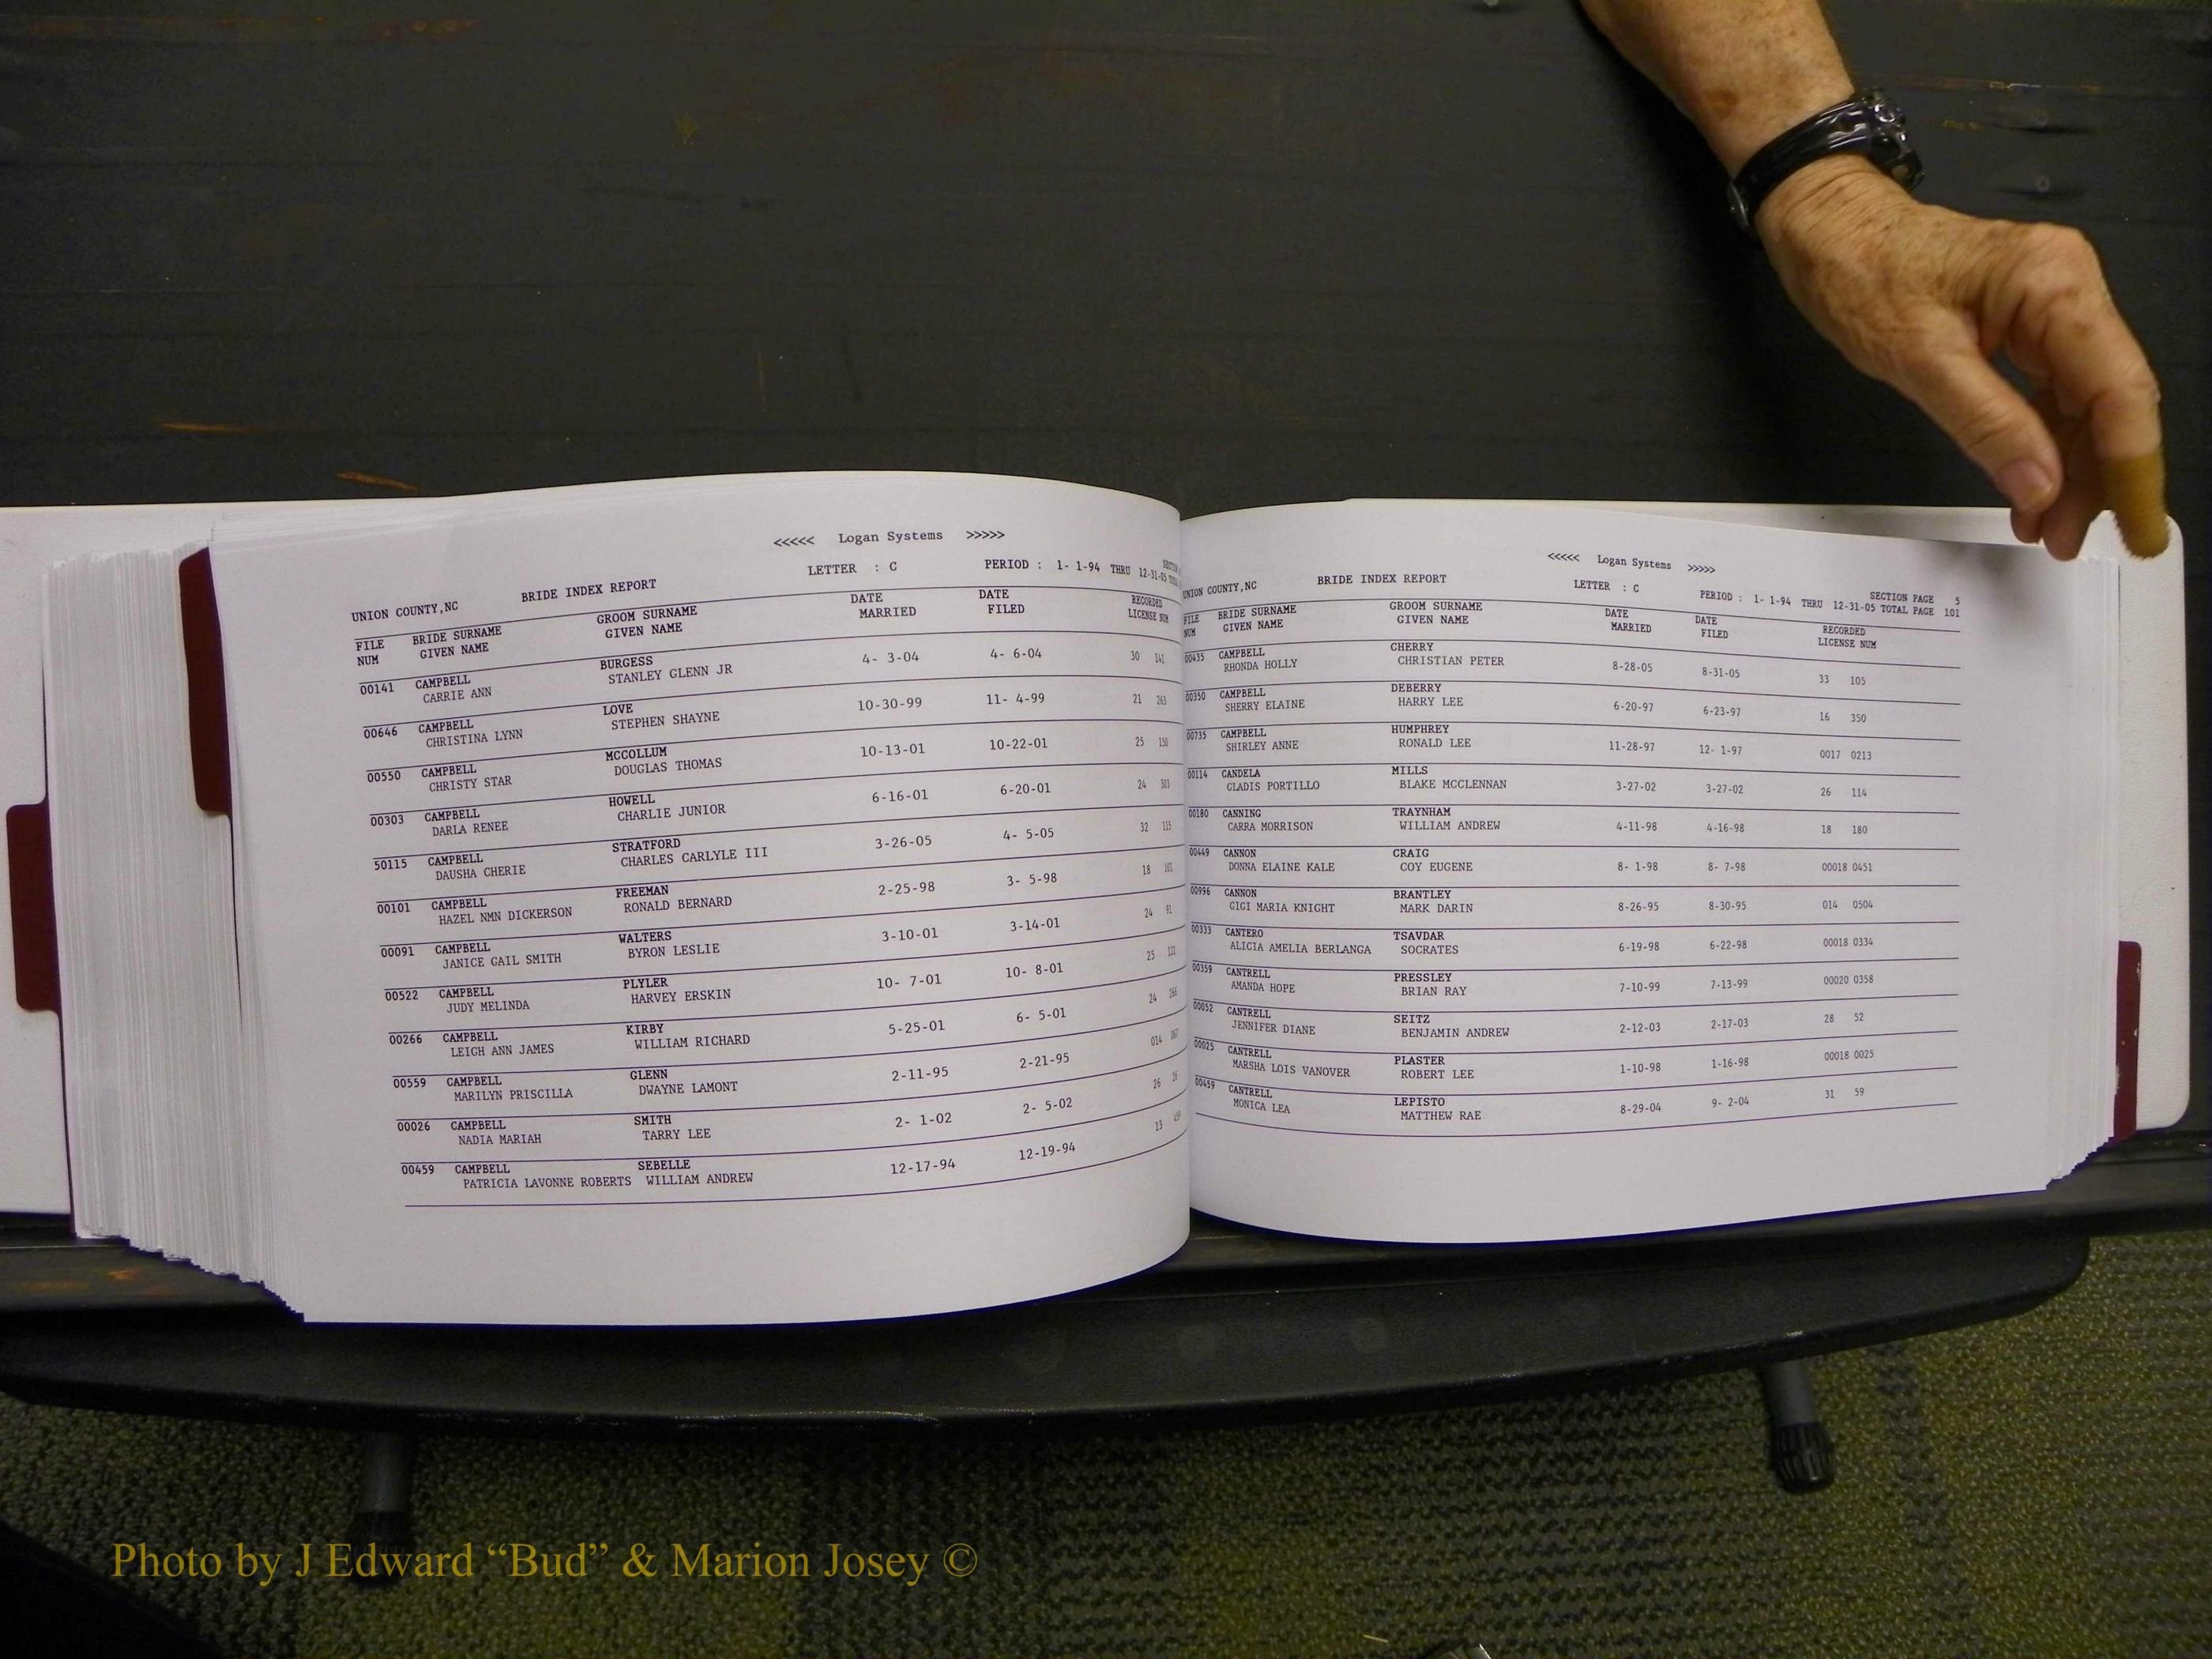 <<<<< Logan Systems >>>>>
UNION COUNTY,NC BRIDE INDEX REPORT LETTER : C PERIOD : 1- 1-94 THRU 12-31-05
FILE BRIDE SURNAME GROOM SURNAME DATE DATE RECORDED
NUM GIVEN NAME GIVEN NAME MARRIED FILED LICENSE NUM
00141 CAMPBELL BURGESS 4- 3-04 4- 6-04 30 141
CARRIE ANN STANLEY GLENN JR
00646 CAMPBELL LOVE 10-30-99 11- 4-99 21 263
CHRISTINA LYNN STEPHEN SHAYNE
00550 CAMPBELL MCCOLLUM 10-13-01 10-22-01 25 150
CHRISTY STAR DOUGLAS THOMAS
00303 CAMPBELL HOWELL 6-16-01 6-20-01 24 303
DARLA RENEE CHARLIE JUNIOR
50115 CAMPBELL STRATFORD 3-26-05 4- 5-05 32 115
DAUSHA CHERIE CHARLES CARLYLE III
00101 CAMPBELL FREEMAN 2-25-98 3- 5-98 18
HAZEL NMN DICKERSON RONALD BERNARD
00091 CAMPBELL WALTERS 3-10-01 3-14-01 24 91
JANICE GAIL SMITH BYRON LESLIE
00522 CAMPBELL PLYLER 10- 7-01 10- 8-01 25
JUDY MELINDA HARVEY ERSKIN
00266 CAMPBELL KIRBY 5-25-01 6- 5-01 24 266
LEIGH ANN JAMES WILLIAM RICHARD
00559 CAMPBELL GLENN 2-11-95 2-21-95 014
MARILYN PRISCILLA DWAYNE LAMONT
00026 CAMPBELL SMITH 2- 1-02 2- 5-02 26 26
NADIA MARIAH TARRY LEE
00459 CAMPBELL SEBELLE 12-17-94 12-19-94 13
PATRICIA LAVONNE ROBERTS WILLIAM ANDREW
<<<<< Logan Systems >>>>>
SECTION PAGE 5
UNION COUNTY,NC BRIDE INDEX REPORT LETTER : C PERIOD : 1- 1-94 THRU 12-31-05 TOTAL PAGE 101
FILE BRIDE SURNAME GROOM SURNAME DATE DATE RECORDED
NUM GIVEN NAME GIVEN NAME MARRIED FILED LICENSE NUM
00435 CAMPBELL CHERRY 8-28-05 8-31-05 33 105
RHONDA HOLLY CHRISTIAN PETER
00350 CAMPBELL DEBERRY 6-20-97 6-23-97 16 350
SHERRY ELAINE HARRY LEE
00735 CAMPBELL HUMPHREY 11-28-97 12- 1-97 0017 0213
SHIRLEY ANNE RONALD LEE
00114 CANDELA MILLS 3-27-02 3-27-02 26 114
GLADIS PORTILLO BLAKE MCCLENNAN
00180 CANNING TRAYNHAM 4-11-98 4-16-98 18 180
CARRA MORRISON WILLIAM ANDREW
00449 CANNON CRAIG 8- 1-98 8- 7-98 00018 0451
DONNA ELAINE KALE COY EUGENE
00996 CANNON BRANTLEY 8-26-95 8-30-95 014 0504
GIGI MARIA KNIGHT MARK DARIN
00333 CANTERO TSAVDAR 6-19-98 6-22-98 00018 0334
ALICIA AMELIA BERLANGA SOCRATES
00359 CANTRELL PRESSLEY 7-10-99 7-13-99 00020 0358
AMANDA HOPE BRIAN RAY
00052 CANTRELL SEITZ 2-12-03 2-17-03 28 52
JENNIFER DIANE BENJAMIN ANDREW
00025 CANTRELL PLASTER 1-10-98 1-16-98 00018 0025
MARSHA LOIS VANOVER ROBERT LEE
00459 CANTRELL LEPISTO 8-29-04 9- 2-04 31 59
MONICA LEA MATTHEW RAE
Photo by J Edward “Bud” & Marion Josey ©